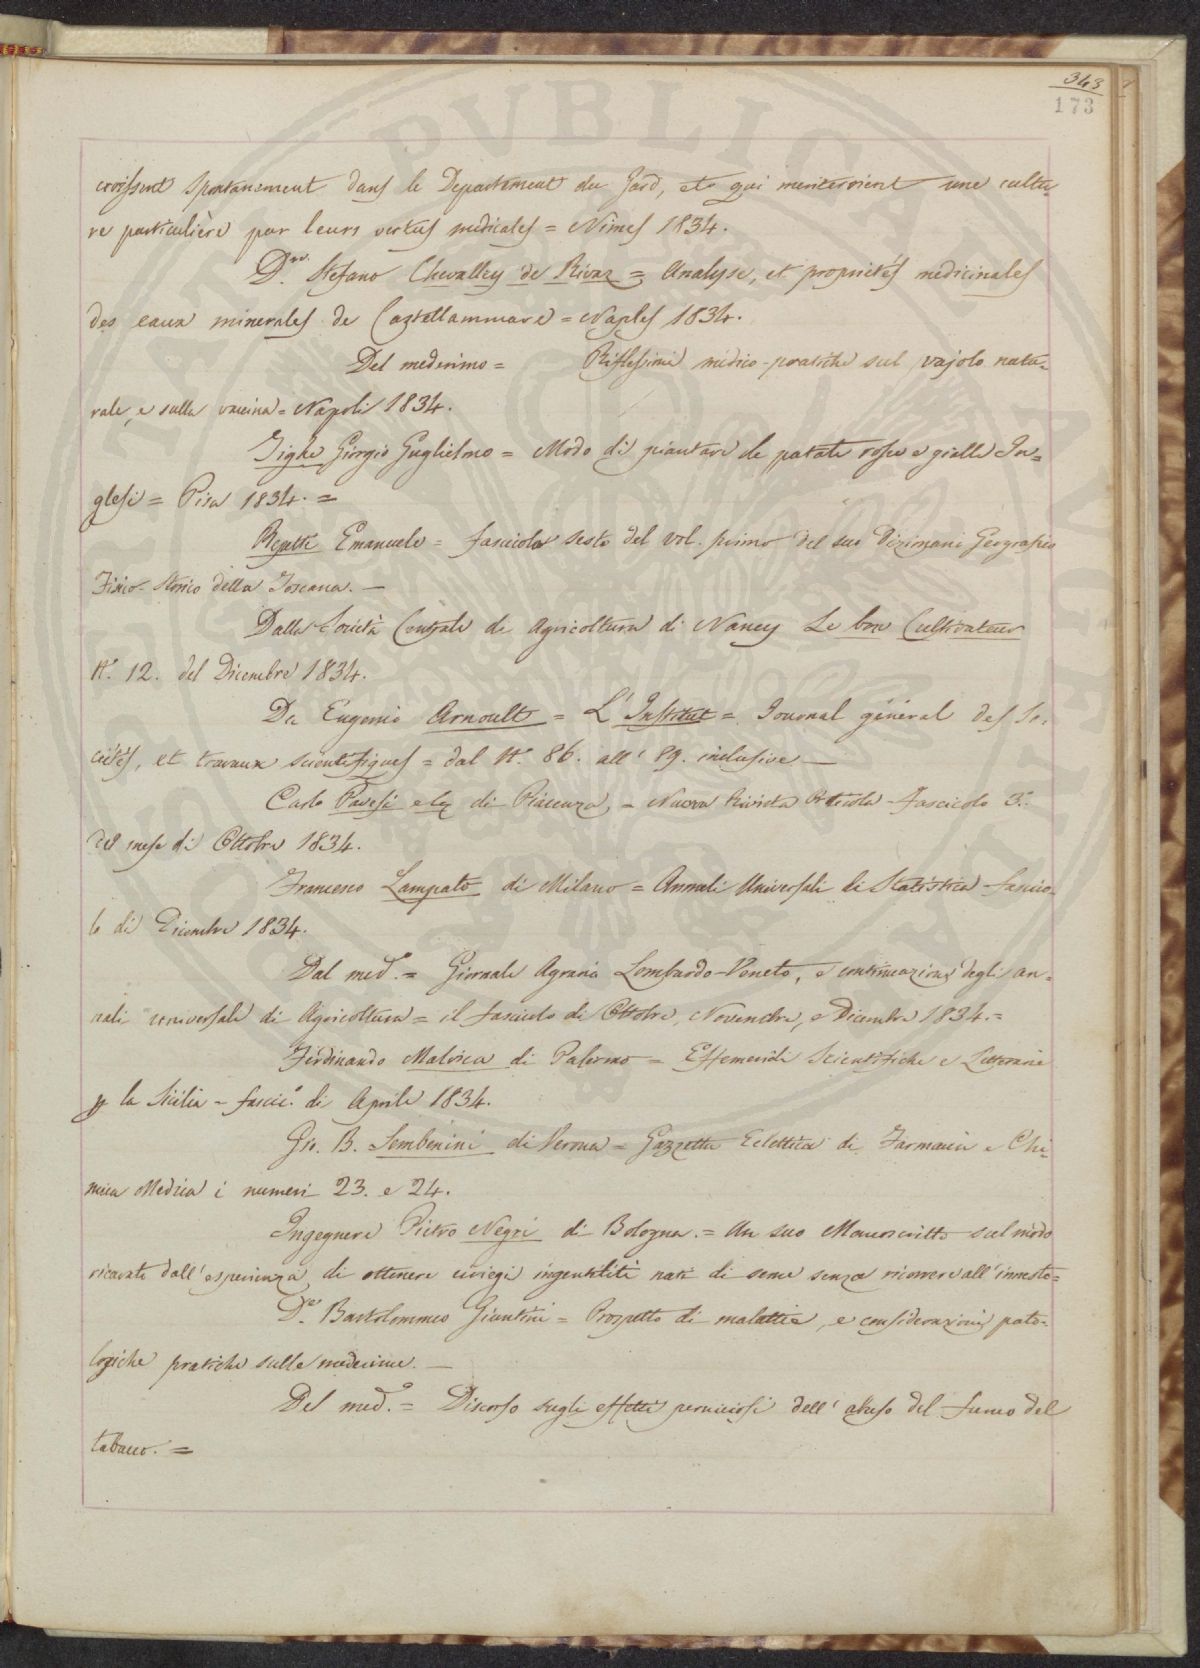 343
173
croissent spontanement dans le Departement du Gard, et qui meriteroient une cultu-
re particulière par leurs vertus medicales = Nimes 1834.
Dr. Stefano Chevalley de Rivaz = Analyse, et proprietés medicinales
des eaux minerales de Castellammare = Naples 1834.
Del medesimo = Riflessioni medico-pratiche sul vajolo natu-
rale, e sulla vaccina = Napoli 1834.
Tighe Giorgio Guglielmo = Modo di piantare le patate rosse e gialle In=
glesi = Pisa 1834. =
Repetti Emanuele = fascicolo sesto del vol. primo del suo Dizionario Geografico
Fisico-Storico della Toscana. —
Dalla Società Centrale di Agricoltura di Nancy Le bon Cultivateur
N.º 12. del Dicembre 1834.
Da Eugenio Arnoult = L'Institut = Journal général des So-
cietés, et travaux scientifiques = dal N.º 86. all' 89. inclusive —
Carlo Pavesi e C. di Piacenza, = Nuova Rivista Fascicolo 3.º
del mese di Ottobre 1834.
Francesco Lampato di Milano = Annali Universali di Statistica fascico-
lo di Dicembre 1834.
Dal med.º = Giornale Agrario Lombardo-Veneto, e continuazione degli an-
nali universali di Agricoltura = il fascicolo di Ottobre, Novembre, e Dicembre 1834. =
Ferdinando Malvica di Palermo = Effemeridi Scientifiche e Letterarie
p la Sicilia - fascic.º di Aprile 1834.
Gio. B. Sembenini di Verona = Gazzetta Eclettica di Farmacia e Chi-
mica Medica i numeri 23. e 24.
Ingegnere Pietro Negri di Bologna. = Un suo Manoscritto sul modo
ricavato dall' esperienza, di ottenere ciriegi ingentiliti nati di seme senza ricorrere all' innesto =
Dr. Bartolommeo Giuntini = Prospetto di malattie, e considerazioni pato-
logiche pratiche sulle medesime. —
Del med.º = Discorso sugli effetti perniciosi dell' abuso del fumo del
tabacco. =